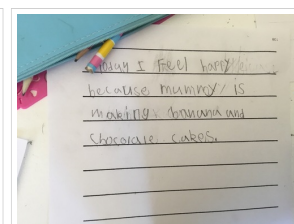 Today I Feel happy
because mummy is
making banana and
chocolate cakes.